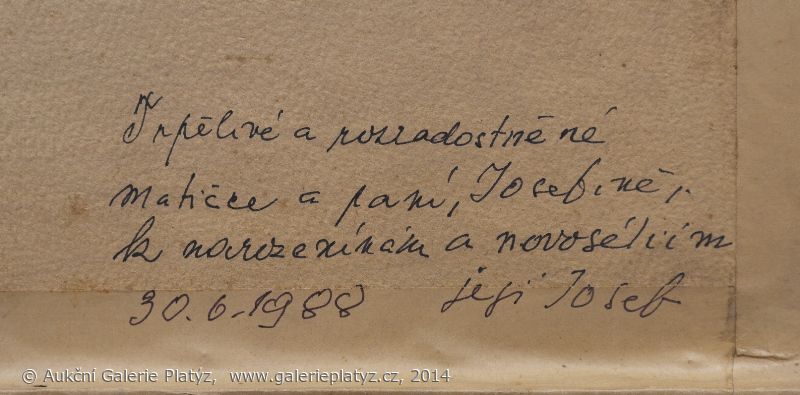 Trpělivé a rozradostněné
matičce a paní, Josefíně,
k narozeninám a novoséliím
30.6.1988 její Josef
© Aukční Galerie Platýz, www.galerieplatyz.cz, 2014